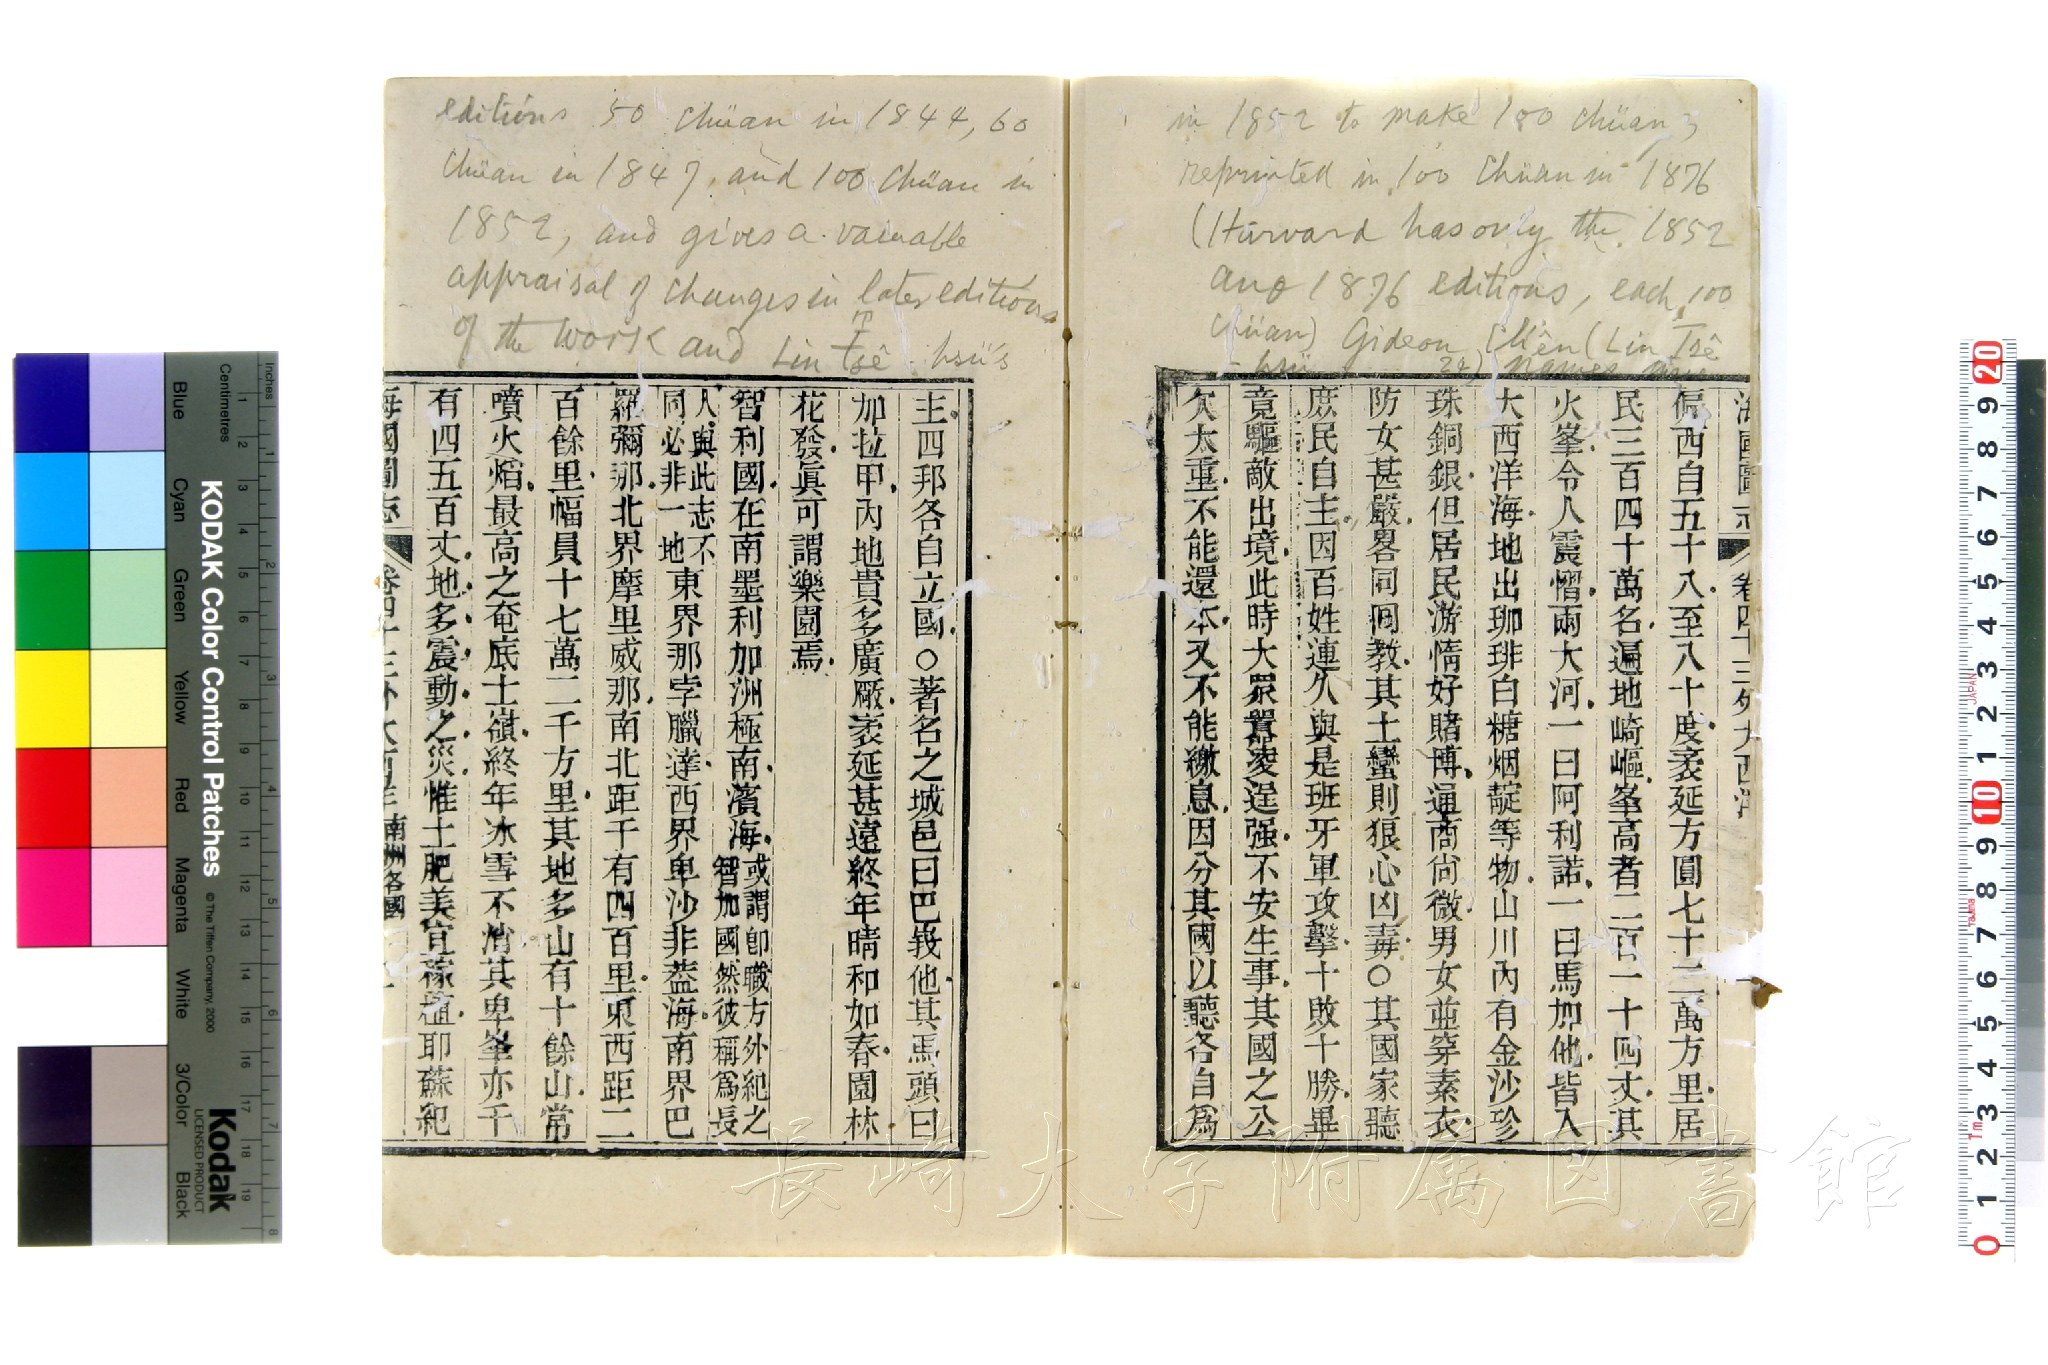 in 1852 to make 100 chüan;
reprinted in 100 chüan in 1876
(Harvard has only the 1852
and 1876 editions, each 100
chüan) Gideon Chên (Lin Tsê
-hsü 24) names five
editions 50 chüan in 1844, 60
chüan in 1847, and 100 chüan in
1852, and gives a valuable
appraisal of changes in later editions
of the work and Lin Tsê-hsü's
海國圖志 卷四十三外大西洋
偏西自五十八至八十度袤延方圓七十二萬方里居
民三百四十萬名遍地崎嶇峯高者二百一十四丈其
火峯令人震慴兩大河一曰阿利諾一曰馬加他皆入
大西洋海地出珈琲白糖烟靛等物山川內有金沙珍
珠銅銀但居民游惰好賭博通商尙微男女並穿素衣
防女甚嚴畧同囘敎其土蠻則狼心凶毒○其國家聽
庶民自主因百姓連久與是班牙軍攻擊十敗十勝畢
竟驅敵出境此時大眾囂凌逞强不安生事其國之公
欠太重不能還本又不能繳息因分其國以聽各自爲
主四邦各自立國○著名之城邑曰巴峩他其馬頭曰
加拉甲內地貴多廣厰袤延甚遠終年晴和如春園林
花發眞可謂樂園焉
智利國在南墨利加洲極南濱海或謂卽職方外紀之
智加國然彼稱爲長
人與此志不
同必非一地東界那孛臘達西界卑沙非益海南界巴
羅彌那北界摩里威那南北距千有四百里東西距二
百餘里幅員十七萬二千方里其地多山有十餘山常
噴火焰最高之奄底士嶺終年冰雪不消其卑峯亦千
有四五百丈地多震動之災惟土肥美宜稼植耶蘇紀
海國圖志 卷四十三外大西洋 南洲各國
長崎大学附属図書館
KODAK Color Control Patches
© The Tiffen Company, 2000
Kodak
LICENSED PRODUCT
Inches
Centimetres
Blue
Cyan
Green
Yellow
Red
Magenta
White
3/Color
Black
1 2 3 4 5 6 7 8 9 10 11 12 13 14 15 16 17 18 19
1 2 3 4 5 6 7 8
20 9 8 7 6 5 4 3 2 1 10 9 8 7 6 5 4 3 2 1 0
JAPAN